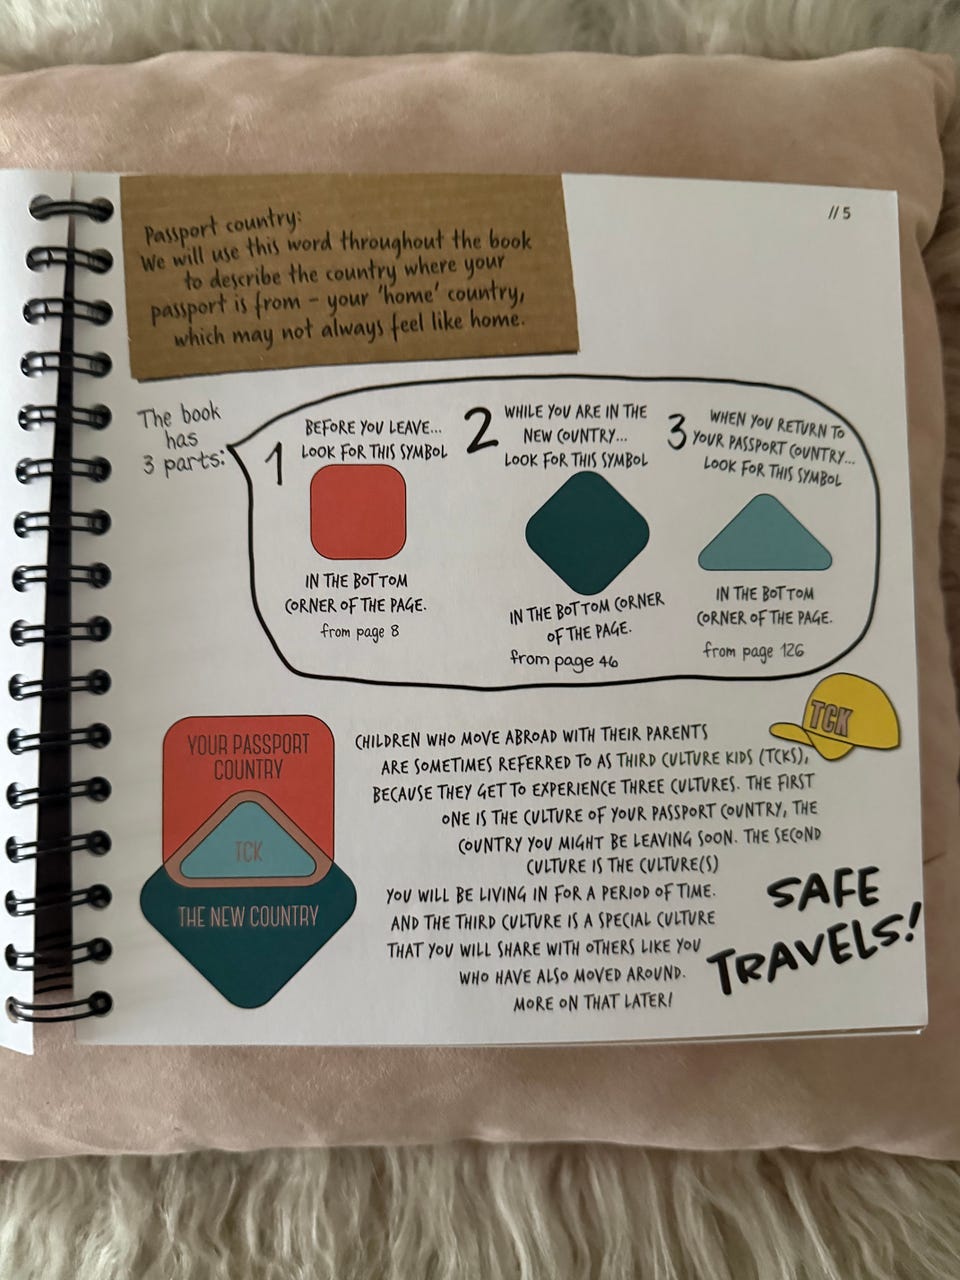 // 5
Passport country:
We will use this word throughout the book
to describe the country where your
passport is from – your 'home' country,
which may not always feel like home.
The book
has
3 parts:
1
BEFORE YOU LEAVE...
LOOK FOR THIS SYMBOL
IN THE BOTTOM
CORNER OF THE PAGE.
from page 8
2
WHILE YOU ARE IN THE
NEW COUNTRY...
LOOK FOR THIS SYMBOL
IN THE BOTTOM CORNER
OF THE PAGE.
from page 46
3
WHEN YOU RETURN TO
YOUR PASSPORT COUNTRY...
LOOK FOR THIS SYMBOL
IN THE BOTTOM
CORNER OF THE PAGE.
from page 126
YOUR PASSPORT
COUNTRY
TCK
THE NEW COUNTRY
TCK
CHILDREN WHO MOVE ABROAD WITH THEIR PARENTS
ARE SOMETIMES REFERRED TO AS THIRD CULTURE KIDS (TCKS),
BECAUSE THEY GET TO EXPERIENCE THREE CULTURES. THE FIRST
ONE IS THE CULTURE OF YOUR PASSPORT COUNTRY, THE
COUNTRY YOU MIGHT BE LEAVING SOON. THE SECOND
CULTURE IS THE CULTURE(S)
YOU WILL BE LIVING IN FOR A PERIOD OF TIME.
AND THE THIRD CULTURE IS A SPECIAL CULTURE
THAT YOU WILL SHARE WITH OTHERS LIKE YOU
WHO HAVE ALSO MOVED AROUND.
MORE ON THAT LATER!
SAFE
TRAVELS!